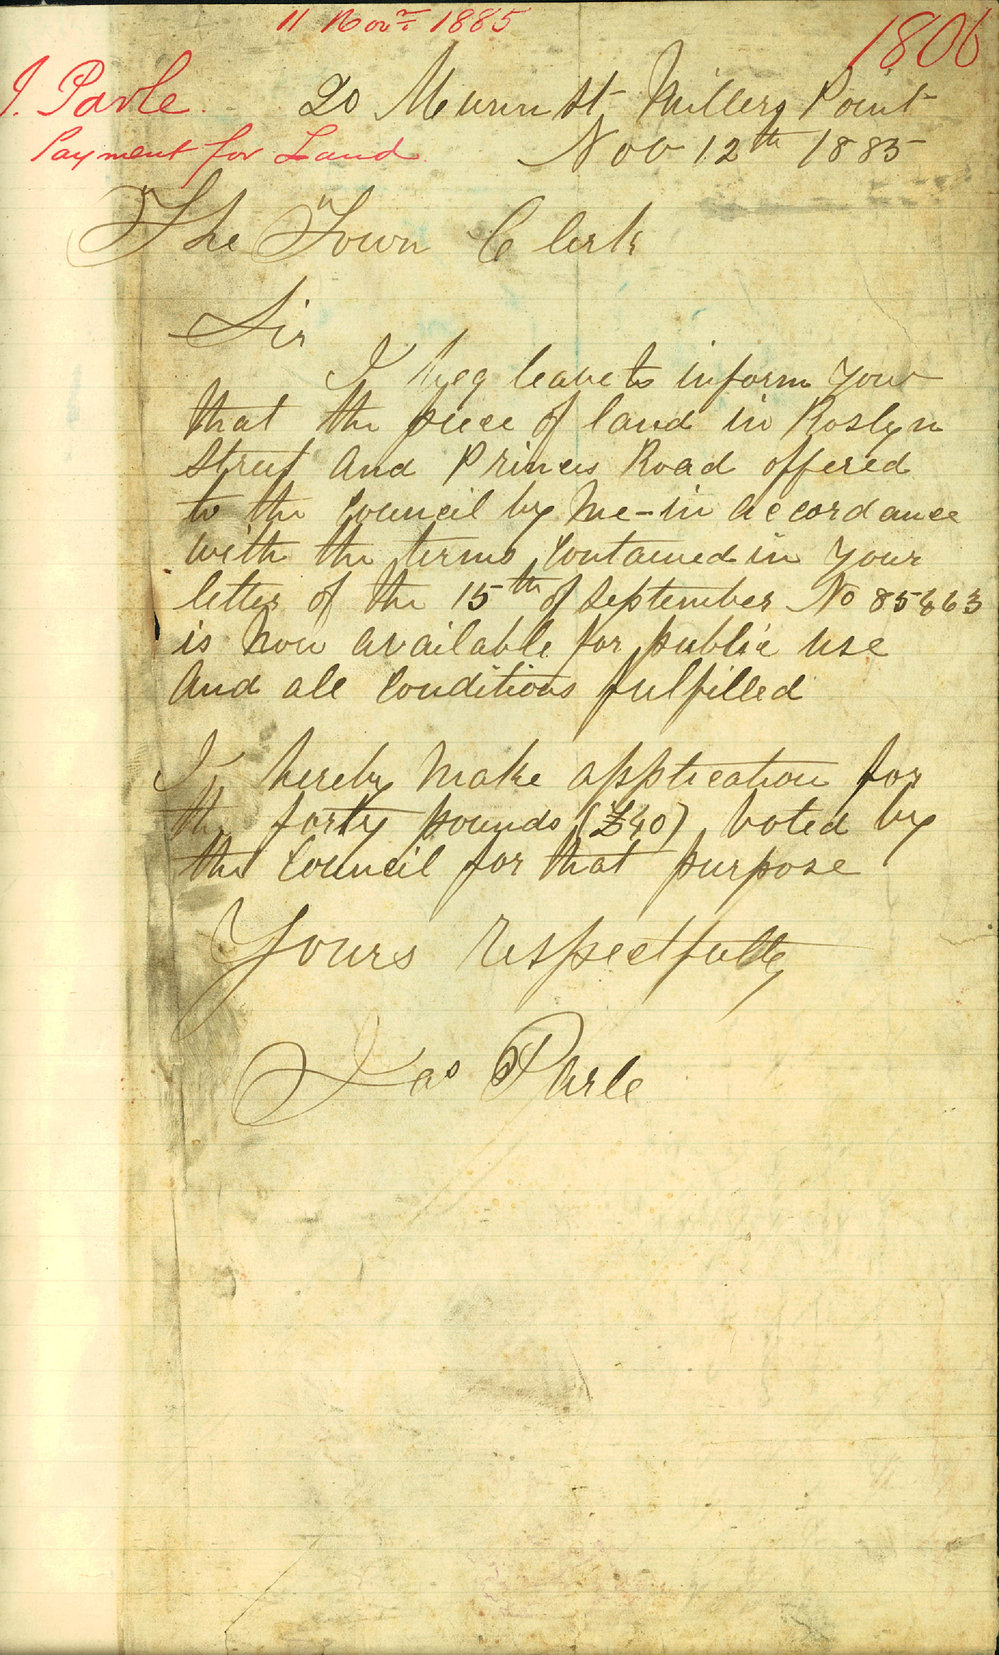 11 Novr. 1885
1806
J. Parle
Payment for Land
20 Munn St Millers Point
Nov 12th 1885
The Town Clerk
Sir
I beg leave to inform you
that the piece of land in Roslyn
Street and Princes Road offered
to the Council by me - in accordance
with the terms contained in your
letter of the 15th of September No 85863
is now available for public use
And all conditions fulfilled
I hereby make application for
the forty pounds (£40) voted by
the Council for that purpose
Yours respectfully
Jas Parle